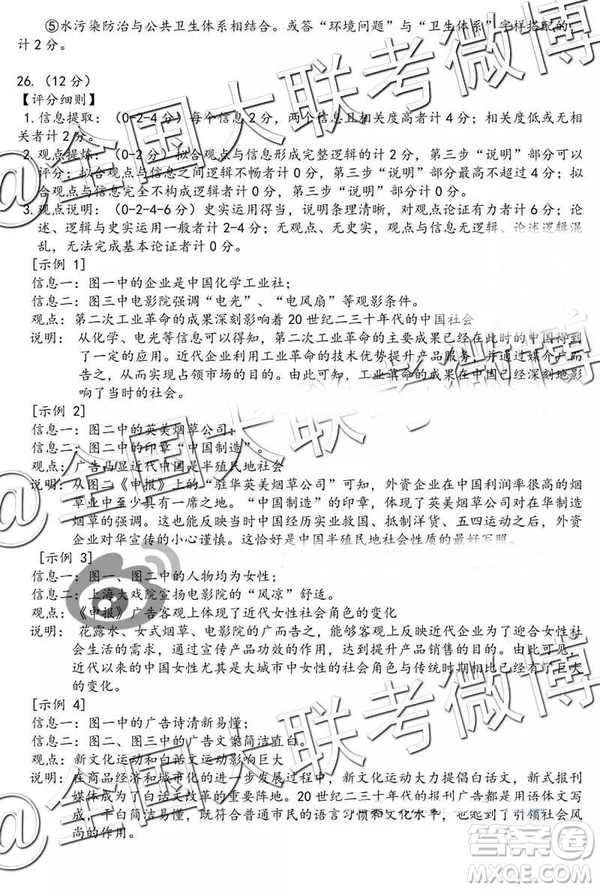 ⑤水污染防治与公共卫生体系相结合。或答“环境问题”与“卫生体系”字样皆可的：
计2分。
26.（12分）
【评分细则】
1.信息提取：（0-2-4分）每个信息2分，两个信息且相关度高者计4分；相关度低或无相
关者计2分。
2.观点提炼：（0-2分）拟合观点与信息形成完整逻辑的计2分，第三步“说明”部分可以
评分；拟合观点与信息之间逻辑不畅者计0分，第三步“说明”部分最高不超过4分；拟
合观点与信息完全不构成逻辑者计0分，第三步“说明”部分计0分。
3.观点说明：（0-2-4-6分）史实运用得当，说明条理清晰，对观点论证有力者计6分；论
述、逻辑与史实运用一般者计2-4分；无观点、无史实，观点信息无逻辑、论述逻辑混
乱，无法完成基本论证者计0分。
[示例 1]
信息一：图一中的企业是中国化学工业社；
信息二：图三中电影院强调“电光”、“电风扇”等观影条件。
观点：第二次工业革命的成果深刻影响着20世纪二三十年代的中国社会
说明： 从化学、电光等信息可以得知，第二次工业革命的主要成果已经在此时的中国得到
了一定的应用。近代企业利用工业革命的技术优势提升产品服务，并通过媒体广而
告之，从而实现占领市场的目的。由此可知，工业革命的成果在中国已经深刻地影
响了当时的社会。
[示例 2]
信息一：图二中的英美烟草公司；
信息二：图二中的印章“中国制造”。
观点：广告凸显近代中国是半殖民地社会
说明：从图二《申报》上的“驻华英美烟草公司”可知，外资企业在中国利润率很高的烟
草业中至少具有一席之地。“中国制造”的印章，体现了英美烟草公司对在华制造
烟草的强调。这可能反映出当时中国经历实业救国、抵制洋货、五四运动之后，外资
企业对华宣传的小心谨慎。这恰好是中国半殖民地社会性质的最好写照。
[示例 3]
信息一：图一、图二中的人物均为女性；
信息二：上海大戏院宣扬电影院的“风凉”舒适。
观点：《申报》广告客观上体现了近代女性社会角色的变化
说明： 花露水、女式烟草、电影院的广而告之，能够体现近代企业为了迎合女性社
会生活的需求，通过宣传产品功效的作用，达到提升产品销售的目的。由此可见，
近代以来的中国女性尤其是大城市中女性的社会角色与传统时期相比已经有了巨大
的变化。
[示例 4]
信息一：图一中的广告诗清新易懂；
信息二：图二、图三中的广告文案简洁直白。
观点：新文化运动和白话文运动影响巨大
说明：在商品经济和城市化的进一步发展过程中，新文化运动大力提倡白话文，新式报刊
媒体成为了白话文改革的重要阵地。20世纪二三十年代的报刊广告都是用语体文写
成，平白简洁易懂，既符合普通市民的语言习惯和文化水平，也起到了引领社会风
尚的作用。
@全国大联考微博
@全国大联考微博
@全国大联考微博
答案圈